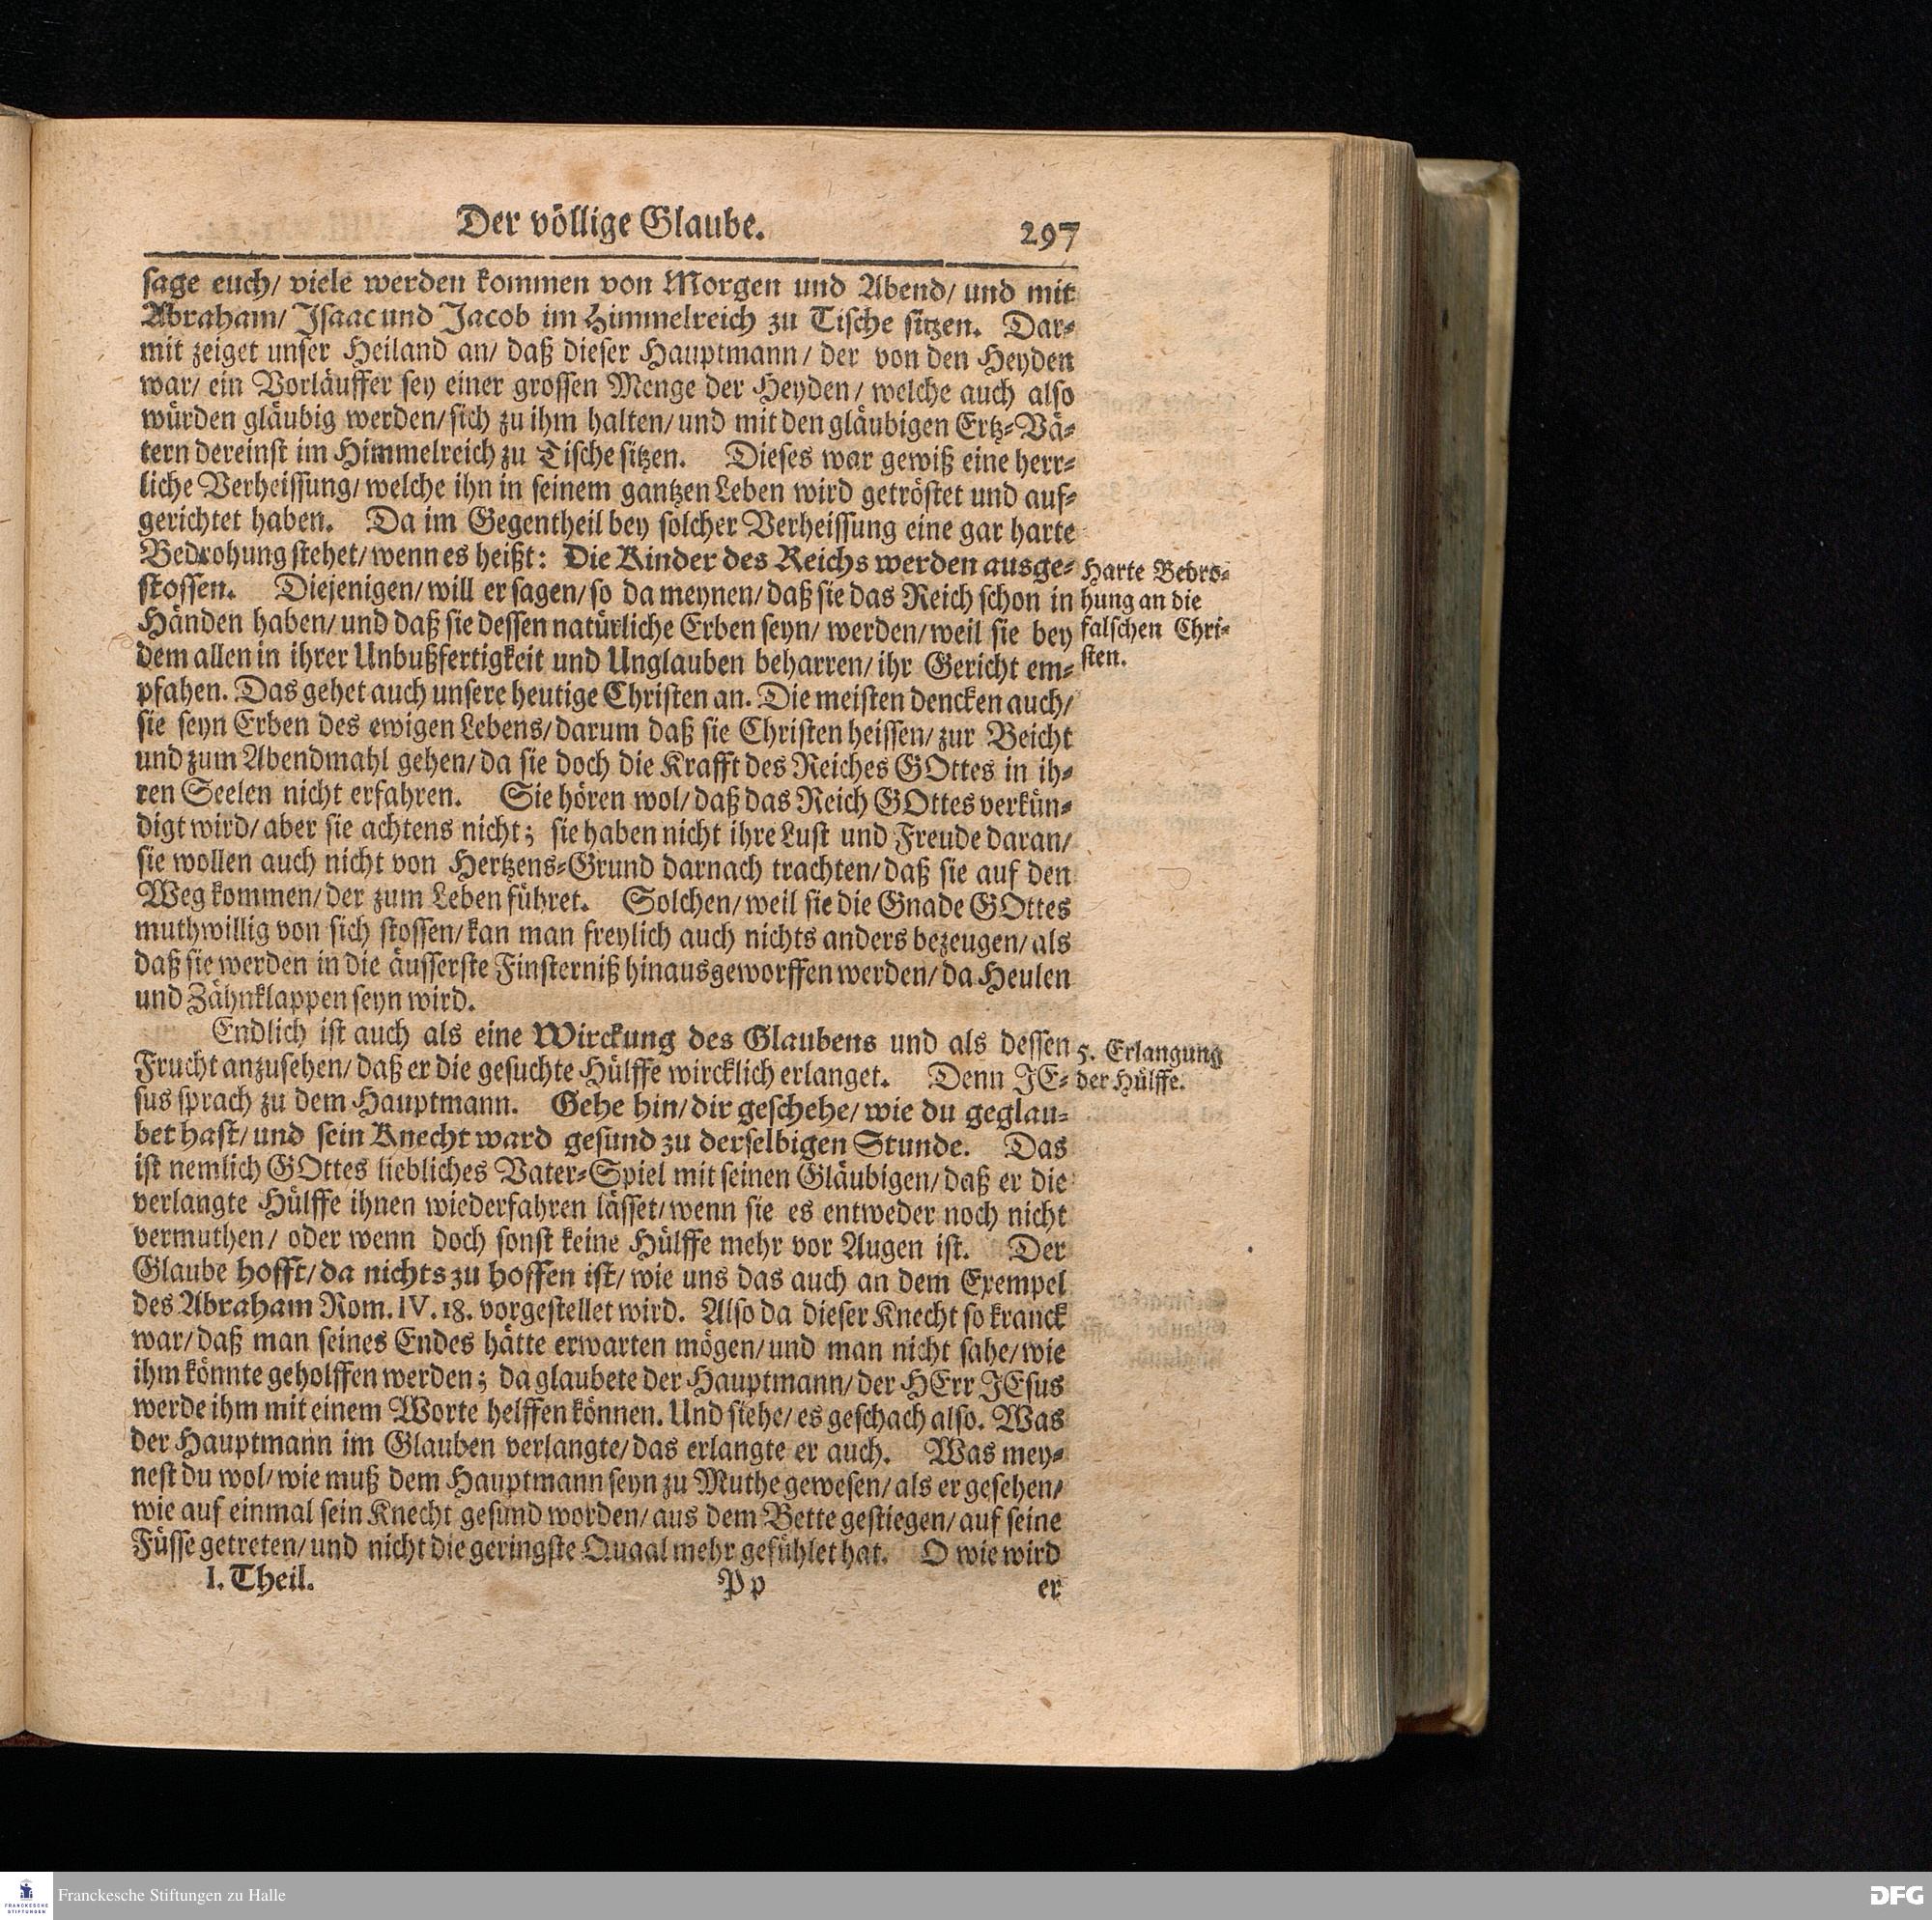 Der völlige Glaube. 297
sage euch/ viele werden kommen von Morgen und Abend/ und mit
Abraham/ Isaac und Jacob im Himmelreich zu Tische sitzen. Dar-
mit zeiget unser Heiland an/ daß dieser Hauptmann/ der von den Heyden
war/ ein Vorläuffer sey einer grossen Menge der Heyden/ welche auch also
würden gläubig werden/ sich zu ihm halten/ und mit den gläubigen Ertz-Vä-
tern dereinst im Himmelreich zu Tische sitzen. Dieses war gewiß eine herr-
liche Verheissung/ welche ihn in seinem gantzen Leben wird getröstet und auf-
gerichtet haben. Da im Gegentheil bey solcher Verheissung eine gar harte
Bedrohung stehet/ wenn es heißt: Die Kinder des Reichs werden ausge-
stossen. Diejenigen/ will er sagen/ so da meynen/ daß sie das Reich schon in
Händen haben/ und daß sie dessen natürliche Erben seyn/ werden/ weil sie bey
dem allen in ihrer Unbußfertigkeit und Unglauben beharren/ ihr Gericht em-
pfahen. Das gehet auch unsere heutige Christen an. Die meisten dencken auch/
sie seyn Erben des ewigen Lebens/ darum daß sie Christen heissen/ zur Beicht
und zum Abendmahl gehen/ da sie doch die Krafft des Reiches GOttes in ih-
ren Seelen nicht erfahren. Sie hören wol/ daß das Reich GOttes verkün-
digt wird/ aber sie achtens nicht; sie haben nicht ihre Lust und Freude daran/
sie wollen auch nicht von Hertzens-Grund darnach trachten/ daß sie auf den
Weg kommen/ der zum Leben führet. Solchen/ weil sie die Gnade GOttes
muthwillig von sich stossen/ kan man freylich auch nichts anders bezeugen/ als
daß sie werden in die äusserste Finsterniß hinausgeworffen werden/ da Heulen
und Zähnklappen seyn wird.
Harte Bedro-
hung an die
falschen Chri-
sten.
Endlich ist auch als eine Wirckung des Glaubens und als dessen
Frucht anzusehen/ daß er die gesuchte Hülffe wircklich erlanget. Denn JE-
sus sprach zu dem Hauptmann. Gehe hin/ dir geschehe/ wie du geglau-
bet hast/ und sein Knecht ward gesund zu derselbigen Stunde. Das
ist nemlich GOttes liebliches Vater-Spiel mit seinen Gläubigen/ daß er die
verlangte Hülffe ihnen wiederfahren lässet/ wenn sie es entweder noch nicht
vermuthen/ oder wenn doch sonst keine Hülffe mehr vor Augen ist. Der
Glaube hofft/ da nichts zu hoffen ist/ wie uns das auch an dem Exempel
des Abraham Rom. IV. 18. vorgestellet wird. Also da dieser Knecht so kranck
war/ daß man seines Endes hätte erwarten mögen/ und man nicht sahe/ wie
ihm könnte geholffen werden; da glaubete der Hauptmann/ der HErr JEsus
werde ihm mit einem Worte helffen können. Und siehe/ es geschach also. Was
der Hauptmann im Glauben verlangte/ das erlangte er auch. Was mey-
nest du wol/ wie muß dem Hauptmann seyn zu Muthe gewesen/ als er gesehen/
wie auf einmal sein Knecht gesund worden/ aus dem Bette gestiegen/ auf seine
Füsse getreten/ und nicht die geringste Quaal mehr gefühlet hat. O wie wird
5. Erlangung
der Hülffe.
I. Theil. Pp er
Franckesche Stiftungen zu Halle
FRANCKESCHE
STIFTUNGEN
DFG